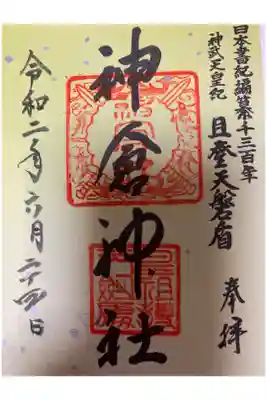 日本書紀編纂千三百年
神武天皇紀
且登天磐盾
奉拝
神倉神社
令和二年六月二十四日